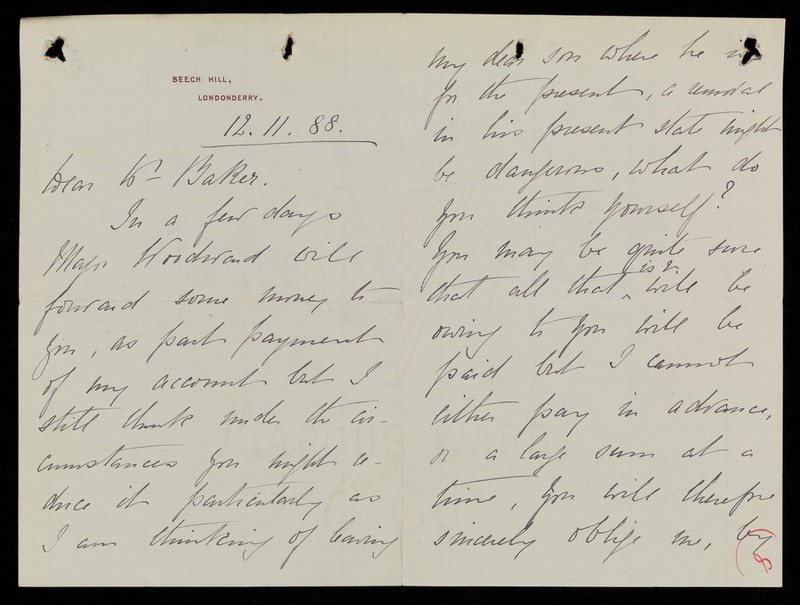 BEECH HILL,
LONDONDERRY.
12.11.88.
Dear Dr Baker.
In a few days
Major Woodward will
forward some money to
you, as part payment
of my account but I
still think under the cir-
cumstances you might re-
duce it particularly as
I am thinking of leaving
my dear son where he is
for the present, a removal
in his present state might
be dangerous, what do
you think yourself?
You may be quite sure
is &
that all that will be
owing to you will be
paid but I cannot
either pay in advance,
or a large sum at a
time, you will therefore
sincerely oblige me, by
8